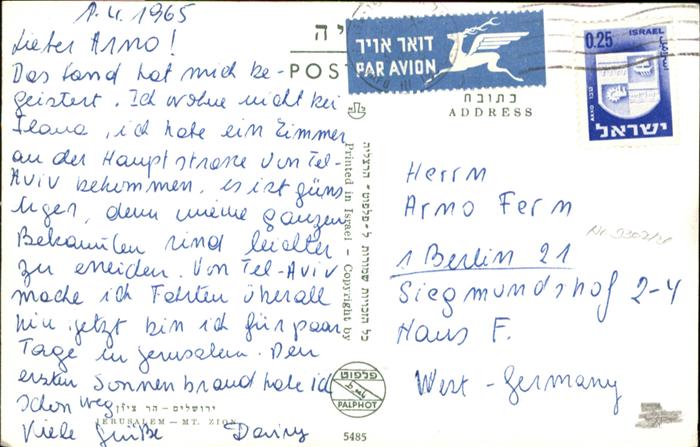 1.4.1965
Lieber Arno!
Das Land hat mich be-
geistert. Ich wohne nicht bei
Ilana, ich habe ein Zimmer
an der Hauptstrasse von Tel-
Aviv bekommen, es ist güns-
tiger, denn meine ganzen
Bekannten sind leichter
zu erreichen. Von Tel-Aviv
mache ich Fahrten überall
hin. Jetzt bin ich für paar
Tage in Jerusalem. Den
ersten Sonnenbrand habe ich
schon weg.
Viele Grüße
ירושלים - הר ציון
JERUSALEM - MT. ZION
POST
דואר אויר
PAR AVION
0.25 ISRAEL
AKKO עכו
ישראל
כתובת
ADDRESS
Printed in Israel - Copyright by
כל הזכויות שמורות ל״פלפוט״ הרצליה
פלפוט
PALPHOT
5485
Herrn
Arno Fern
1 Berlin 21
Siegmundshof 2-4
Haus F.
West-Germany